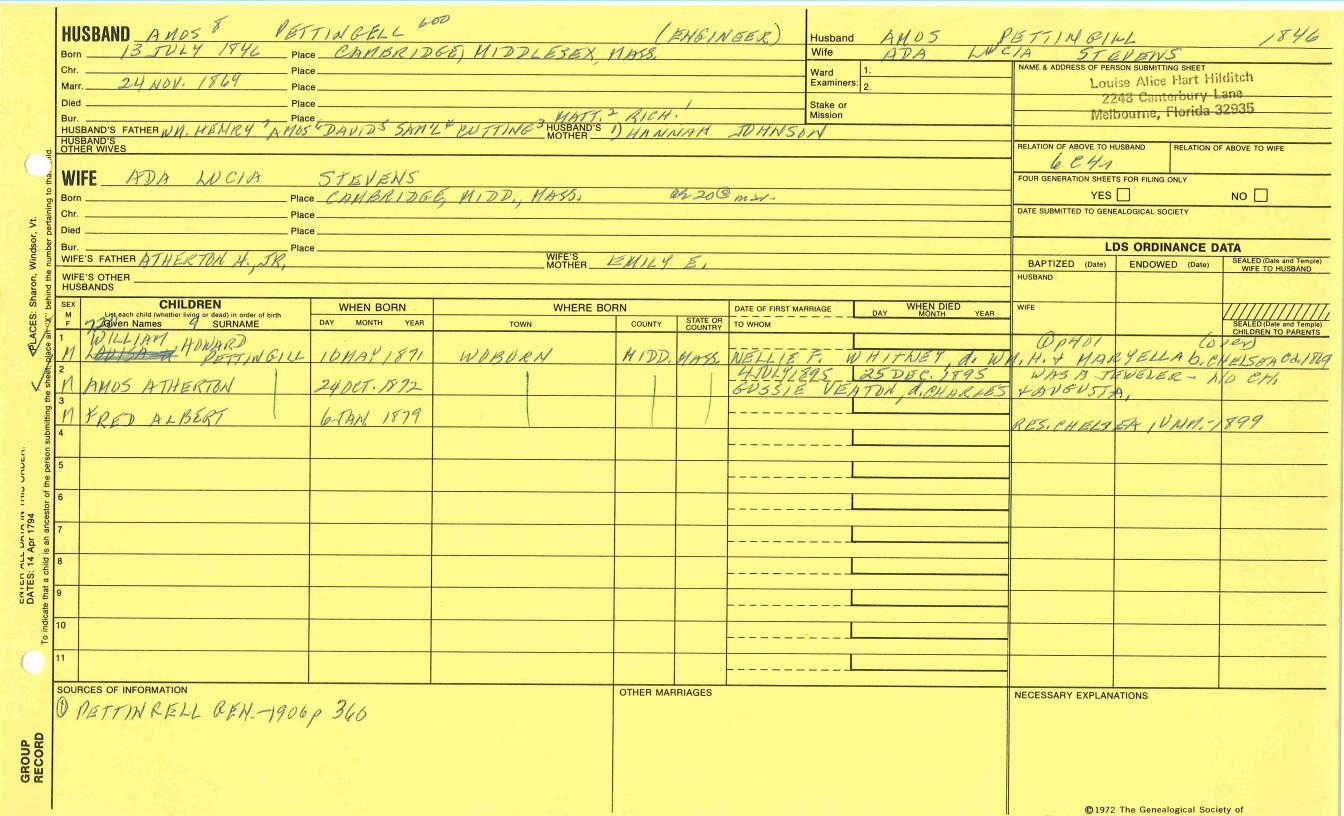 HUSBAND AMOS 8 PETTINGELL 600 (ENGINEER)
Born 13 JULY 1846 Place CAMBRIDGE, MIDDLESEX, MASS.
Chr. Place
Marr. 24 NOV. 1869 Place
Died Place
Bur. Place MATT.2 RICH.1
HUSBAND'S FATHER WM. HENRY 7 AMOS 6 DAVID 5 SAM'L 4 CUTTING 3 HUSBAND'S MOTHER 1) HANNAH JOHNSON
HUSBAND'S OTHER WIVES
WIFE ADA LUCIA STEVENS
Born Place CAMBRIDGE, MIDD., MASS.
Chr. Place
Died Place
Bur. Place
WIFE'S FATHER ATHERTON H., JR. WIFE'S MOTHER EMILY E.
WIFE'S OTHER HUSBANDS
Husband AMOS PETTINGILL 1846
Wife ADA LUCIA STEVENS
Ward Examiners: 1.
2.
Stake or Mission
NAME & ADDRESS OF PERSON SUBMITTING SHEET
Louise Alice Hart Hilditch
2248 Canterbury Lane
Melbourne, Florida 32935
RELATION OF ABOVE TO HUSBAND RELATION OF ABOVE TO WIFE
6C4r
FOUR GENERATION SHEETS FOR FILING ONLY
YES NO
DATE SUBMITTED TO GENEALOGICAL SOCIETY
LDS ORDINANCE DATA
BAPTIZED (Date) ENDOWED (Date) SEALED (Date and Temple) WIFE TO HUSBAND
HUSBAND
WIFE
SEALED (Date and Temple) CHILDREN TO PARENTS
SEX M F
CHILDREN
List each child (whether living or dead) in order of birth
Given Names 9 SURNAME
WHEN BORN
DAY MONTH YEAR
WHERE BORN
TOWN COUNTY STATE OR COUNTRY
DATE OF FIRST MARRIAGE
TO WHOM
WHEN DIED
DAY MONTH YEAR
1 M WILLIAM HOWARD PETTINGILL 10 MAY 1871 WOBURN MIDD. MASS. NELLIE F. WHITNEY, d. WM. H. & MARYELLA b. CHELSEA Ca 1869
① p401 (over)
2 M AMOS ATHERTON 24 OCT. 1872 4 JULY 1895 25 DEC. 1895 WAS A JEWELER - NO CH.
GUSSIE VEATON, d. CHARLES & AUGUSTA.
3 M FRED ALBERT 6 JAN. 1879 RES. CHELSEA, UNM.-1899
4
5
6
7
8
9
10
11
SOURCES OF INFORMATION
① PETTINGELL GEN.-1906 p 360
OTHER MARRIAGES
NECESSARY EXPLANATIONS
©1972 The Genealogical Society of
PLACES: Sharon, Windsor, Vt.
ENTER ALL DATA IN THIS ORDER:
DATES: 14 Apr 1794
To indicate that a child is an ancestor of the person submitting the sheet, place an "X" behind the number pertaining to that child.
GROUP RECORD